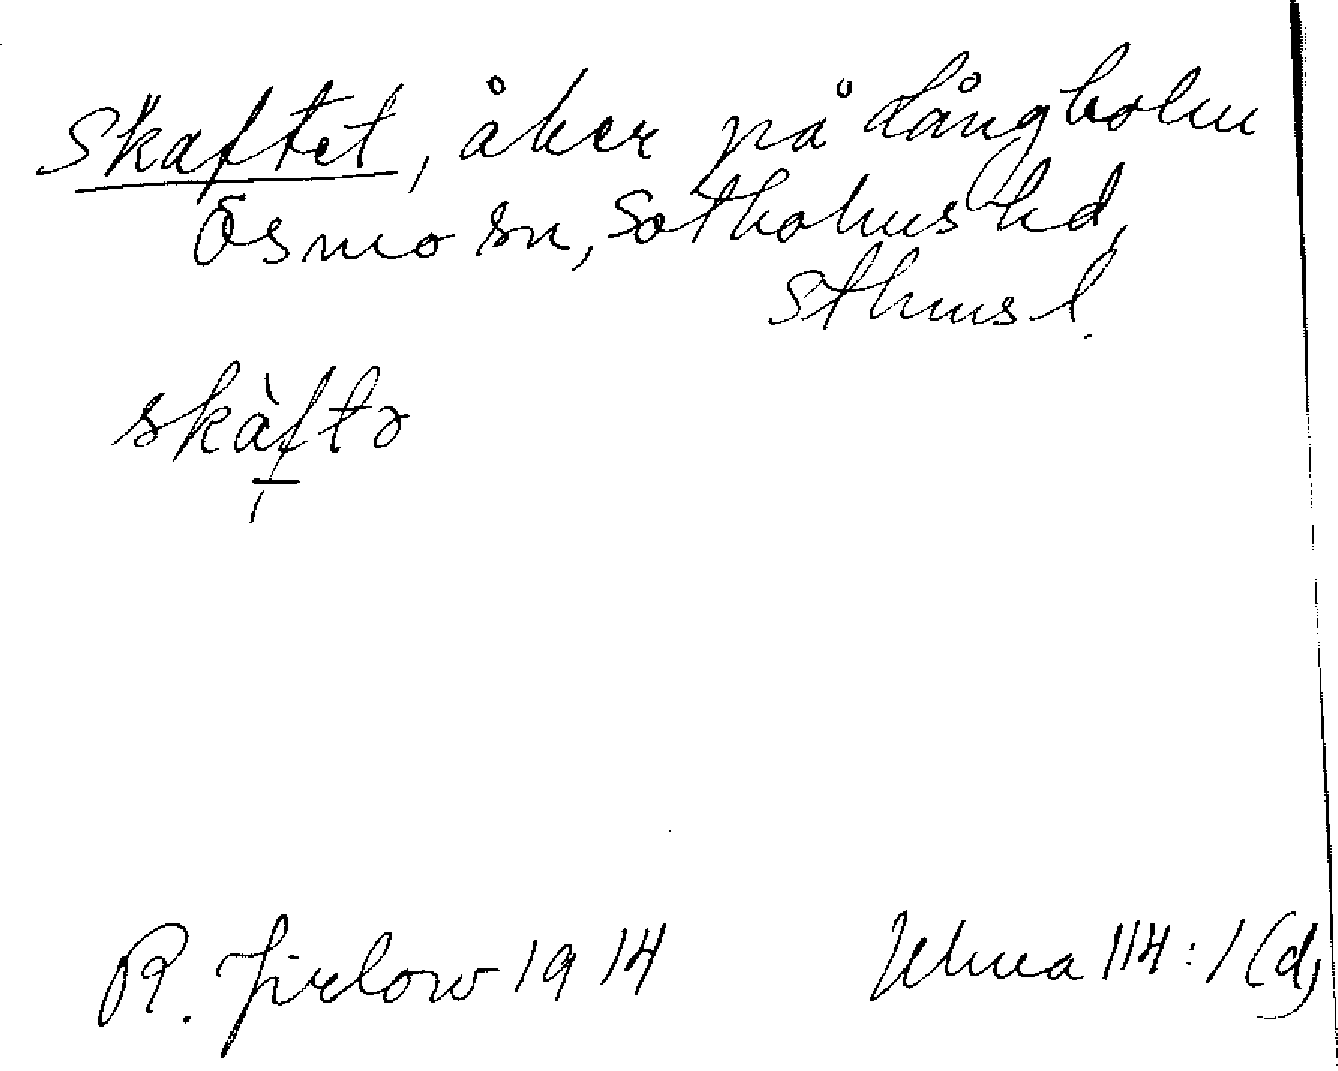 Skaftet, åker på Långholm
Ösmo sn, Sotholms hd,
Sthms l.
skàftə
R. Jirlow 1914 Ulma 114:1(d)